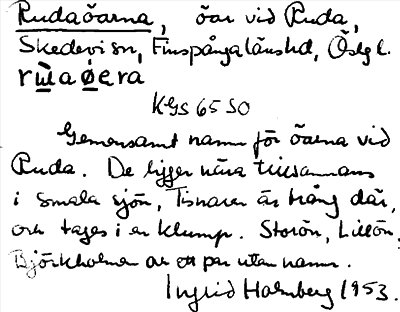 Rudaöarna, öar vid Ruda,
Skedevi sn, Finspångalänshd, Östgl.
rɯ̀aøera
KGS 65 SO
Gemensamt namn för öarna vid
Ruda. De ligger nära tillsammans
i smala sjön, Tisnaren är trång där,
och tages i en klump. Storön, Lillön,
Björkholmen och ett par utan namn.
Ingrid Holmberg 1953.